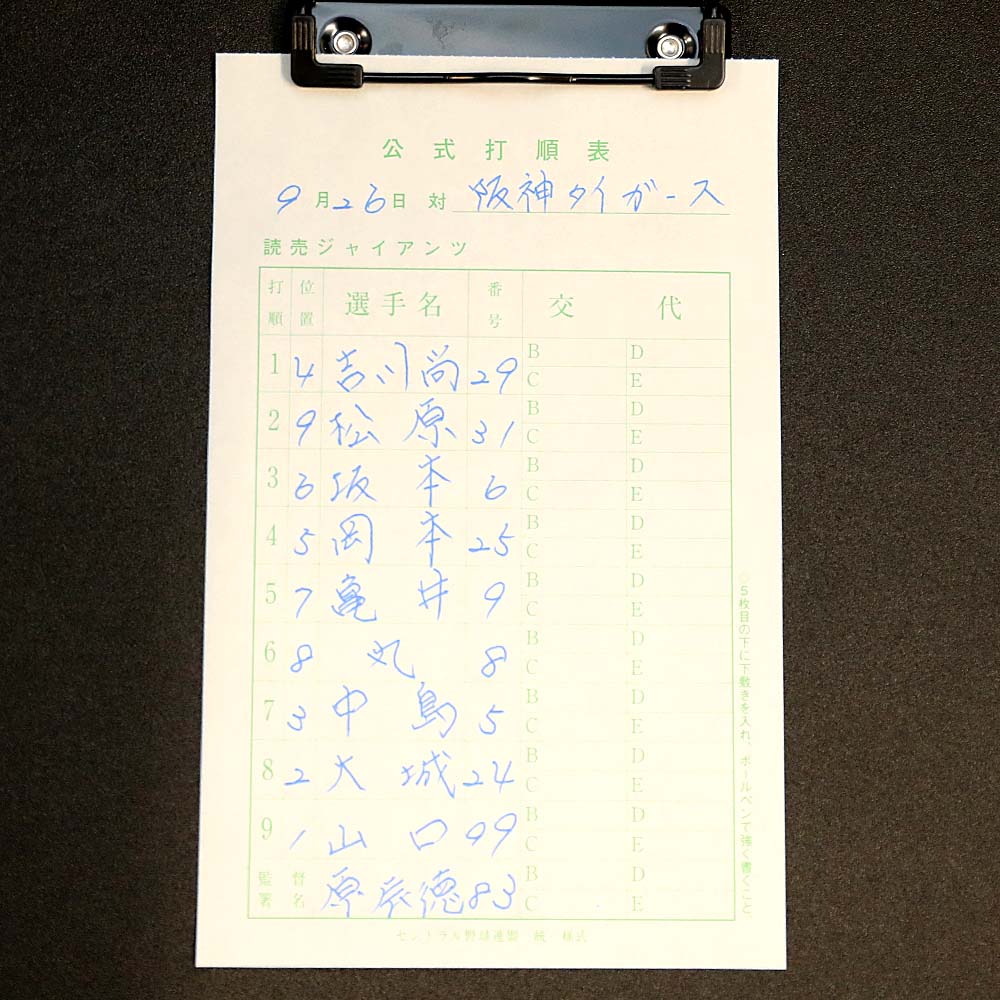 公式打順表
9月26日 対 阪神タイガース
読売ジャイアンツ
打順 位置 選手名 番号 交代
1 4 吉川尚 29 B D C E
2 9 松原 31 B D C E
3 6 坂本 6 B D C E
4 5 岡本 25 B D C E
5 7 亀井 9 B D C E
6 8 丸 8 B D C E
7 3 中島 5 B D C E
8 2 大城 24 B D C E
9 1 山口 99 B D C E
監督署名 原辰徳 83 B D C E
セントラル野球連盟 統一様式
○5枚目の下に下敷きを入れ、ボールペンで強く書くこと